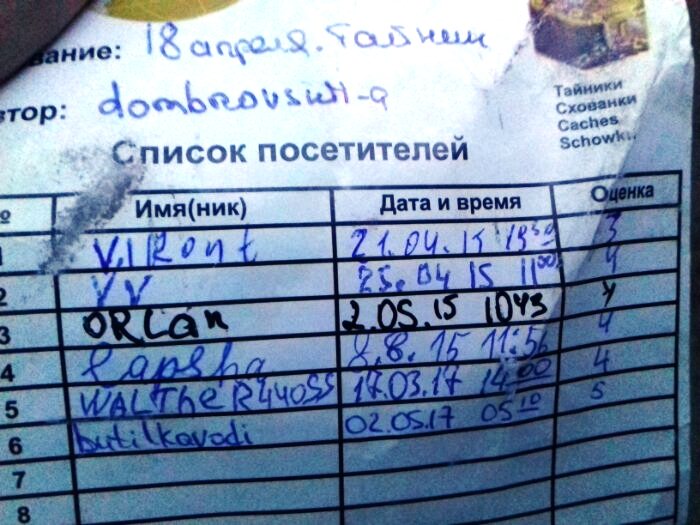 вание: 18 апреля. Тайник
втор: dombrovskii-a
Тайники
Схованки
Caches
Schowk
Список посетителей
№ Имя(ник) Дата и время Оценка
1 V.I.Ront 21.04.15 13 30 3
2 VV 25.04 15 11 00 4
3 ORLan 2.05.15 10 43 4
4 Lapsha 8.8.15 11:56 4
5 WALTheR440SS 17.03.17 14 00 4
6 butilkavodi 02.05.17 05 10 5
7
8